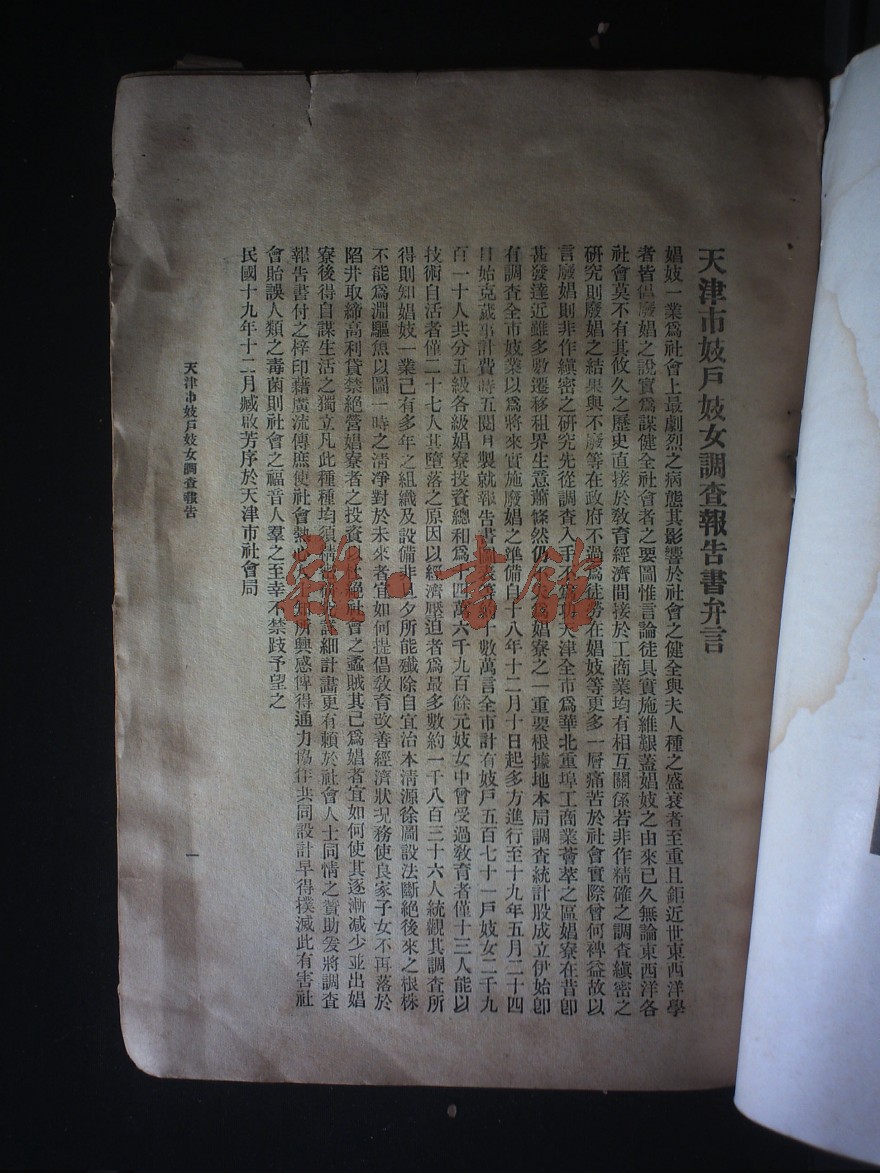 天津市妓戶妓女調查報告書弁言
娼妓一業爲社會上最劇烈之病態其影響於社會之健全與夫人種之盛衰者至重且鉅近世東西洋學
者皆倡廢娼之說實爲謀健全社會者之要圖惟言論徒具實施維艱蓋娼妓之由來已久無論東西洋各
社會莫不有其攸久之歷史直接於敎育經濟間接於工商業均有相互關係若非作精確之調查縝密之
研究則廢娼之結果與不廢等在政府不過爲徒勞在娼妓等更多一層痛苦於社會實際曾何稗益故以
言廢娼則非作縝密之研究先從調查入手不爲功天津全市爲華北重埠工商業薈萃之區娼寮在昔卽
甚發達近雖多數遷移租界生意蕭條然仍不失爲娼寮之一重要根據地本局調查統計股成立伊始卽
有調查全市妓業以爲將來實施廢娼之準備自十八年十二月十日起多方進行至十九年五月二十四
日始克蕆事計費時五閱月製就報告書圖表 十數萬言全市計有妓戶五百七十一戶妓女二千九
百一十人共分五級各級娼寮投資總和爲十四萬六千九百餘元妓女中曾受過敎育者僅十三人能以
技術自活者僅二十七人其墮落之原因以經濟壓迫者爲最多數約一千八百三十六人統觀其調查所
得則知娼妓一業已有多年之組織及設備非旦夕所能殲除自宜治本淸源徐圖設法斷絕後來之根株
不能爲淵驅魚以圖一時之淸凈對於未來者宜如何提倡敎育改善經濟狀況務使良家子女不再落於
陷井取締高利貸禁絕營娼寮者之投資以杜絕社會之蠹賊其已爲娼者宜如何使其逐漸减少並出娼
寮後得自謀生活之獨立凡此種種均須精 詳細計畫更有賴於社會人士同情之贊助爰將調查
報告書付之梓印藉廣流傳庶使社會熱心人士知所興感俾得通力協作共同設計早得撲滅此有害社
會貽誤人類之毒菌則社會之福音人羣之至幸不禁跂予望之
民國十九年十二月臧啟芳序於天津市社會局
天津市妓戶妓女調查報告
一
雜·書館